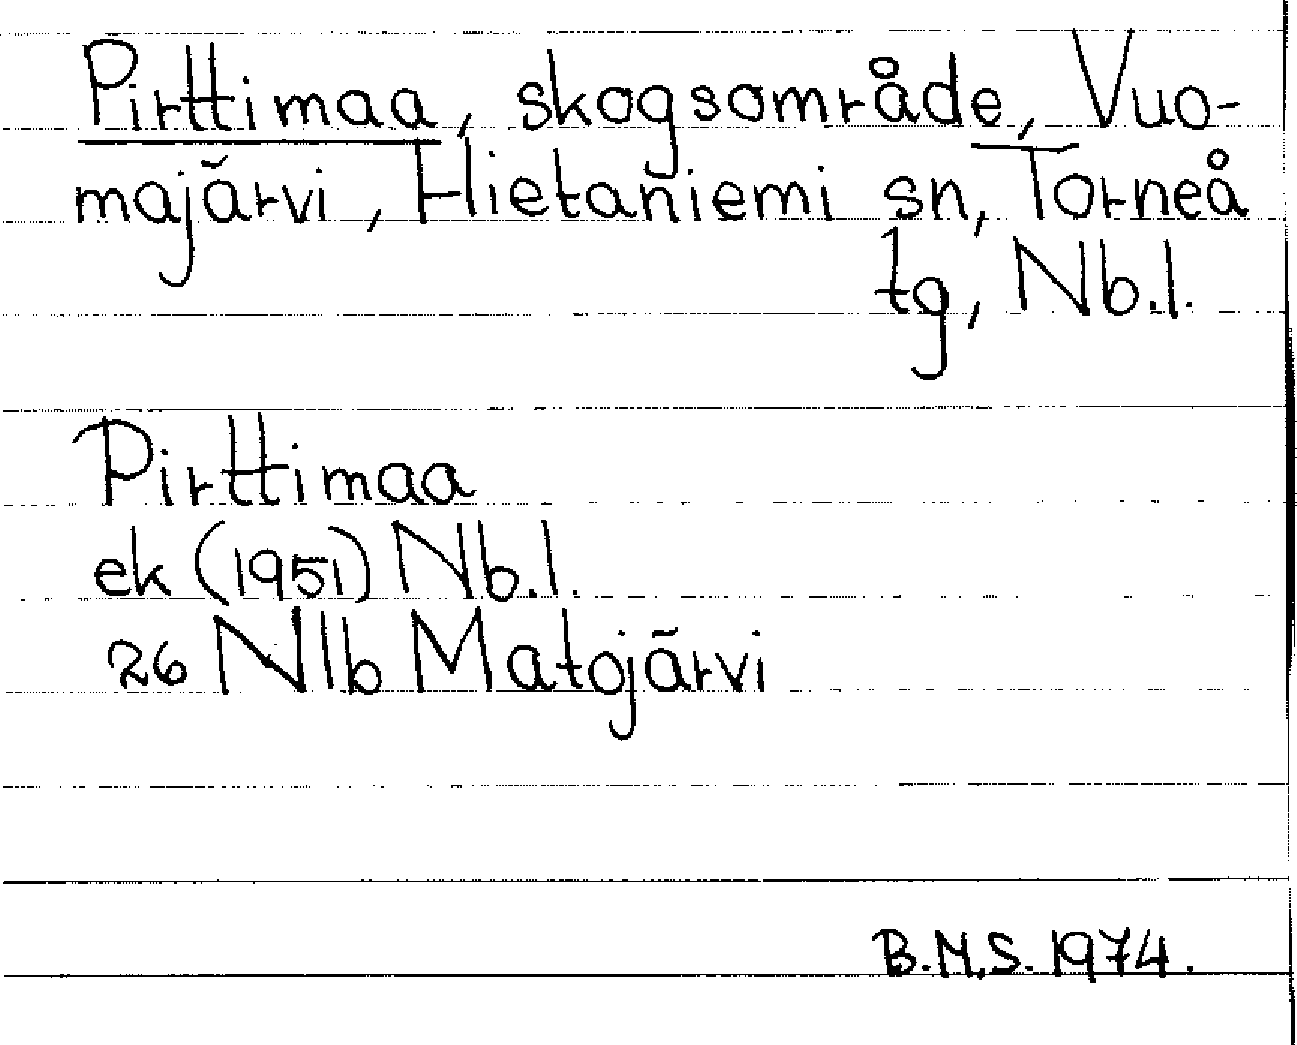 Pirttimaa, skogsområde, Vuo-
majärvi, Hietaniemi sn, Torneå
tg, Nb.l.
Pirttimaa
ek (1951) Nb.l.
26 Nlb Matojärvi
B.M.S. 1974.